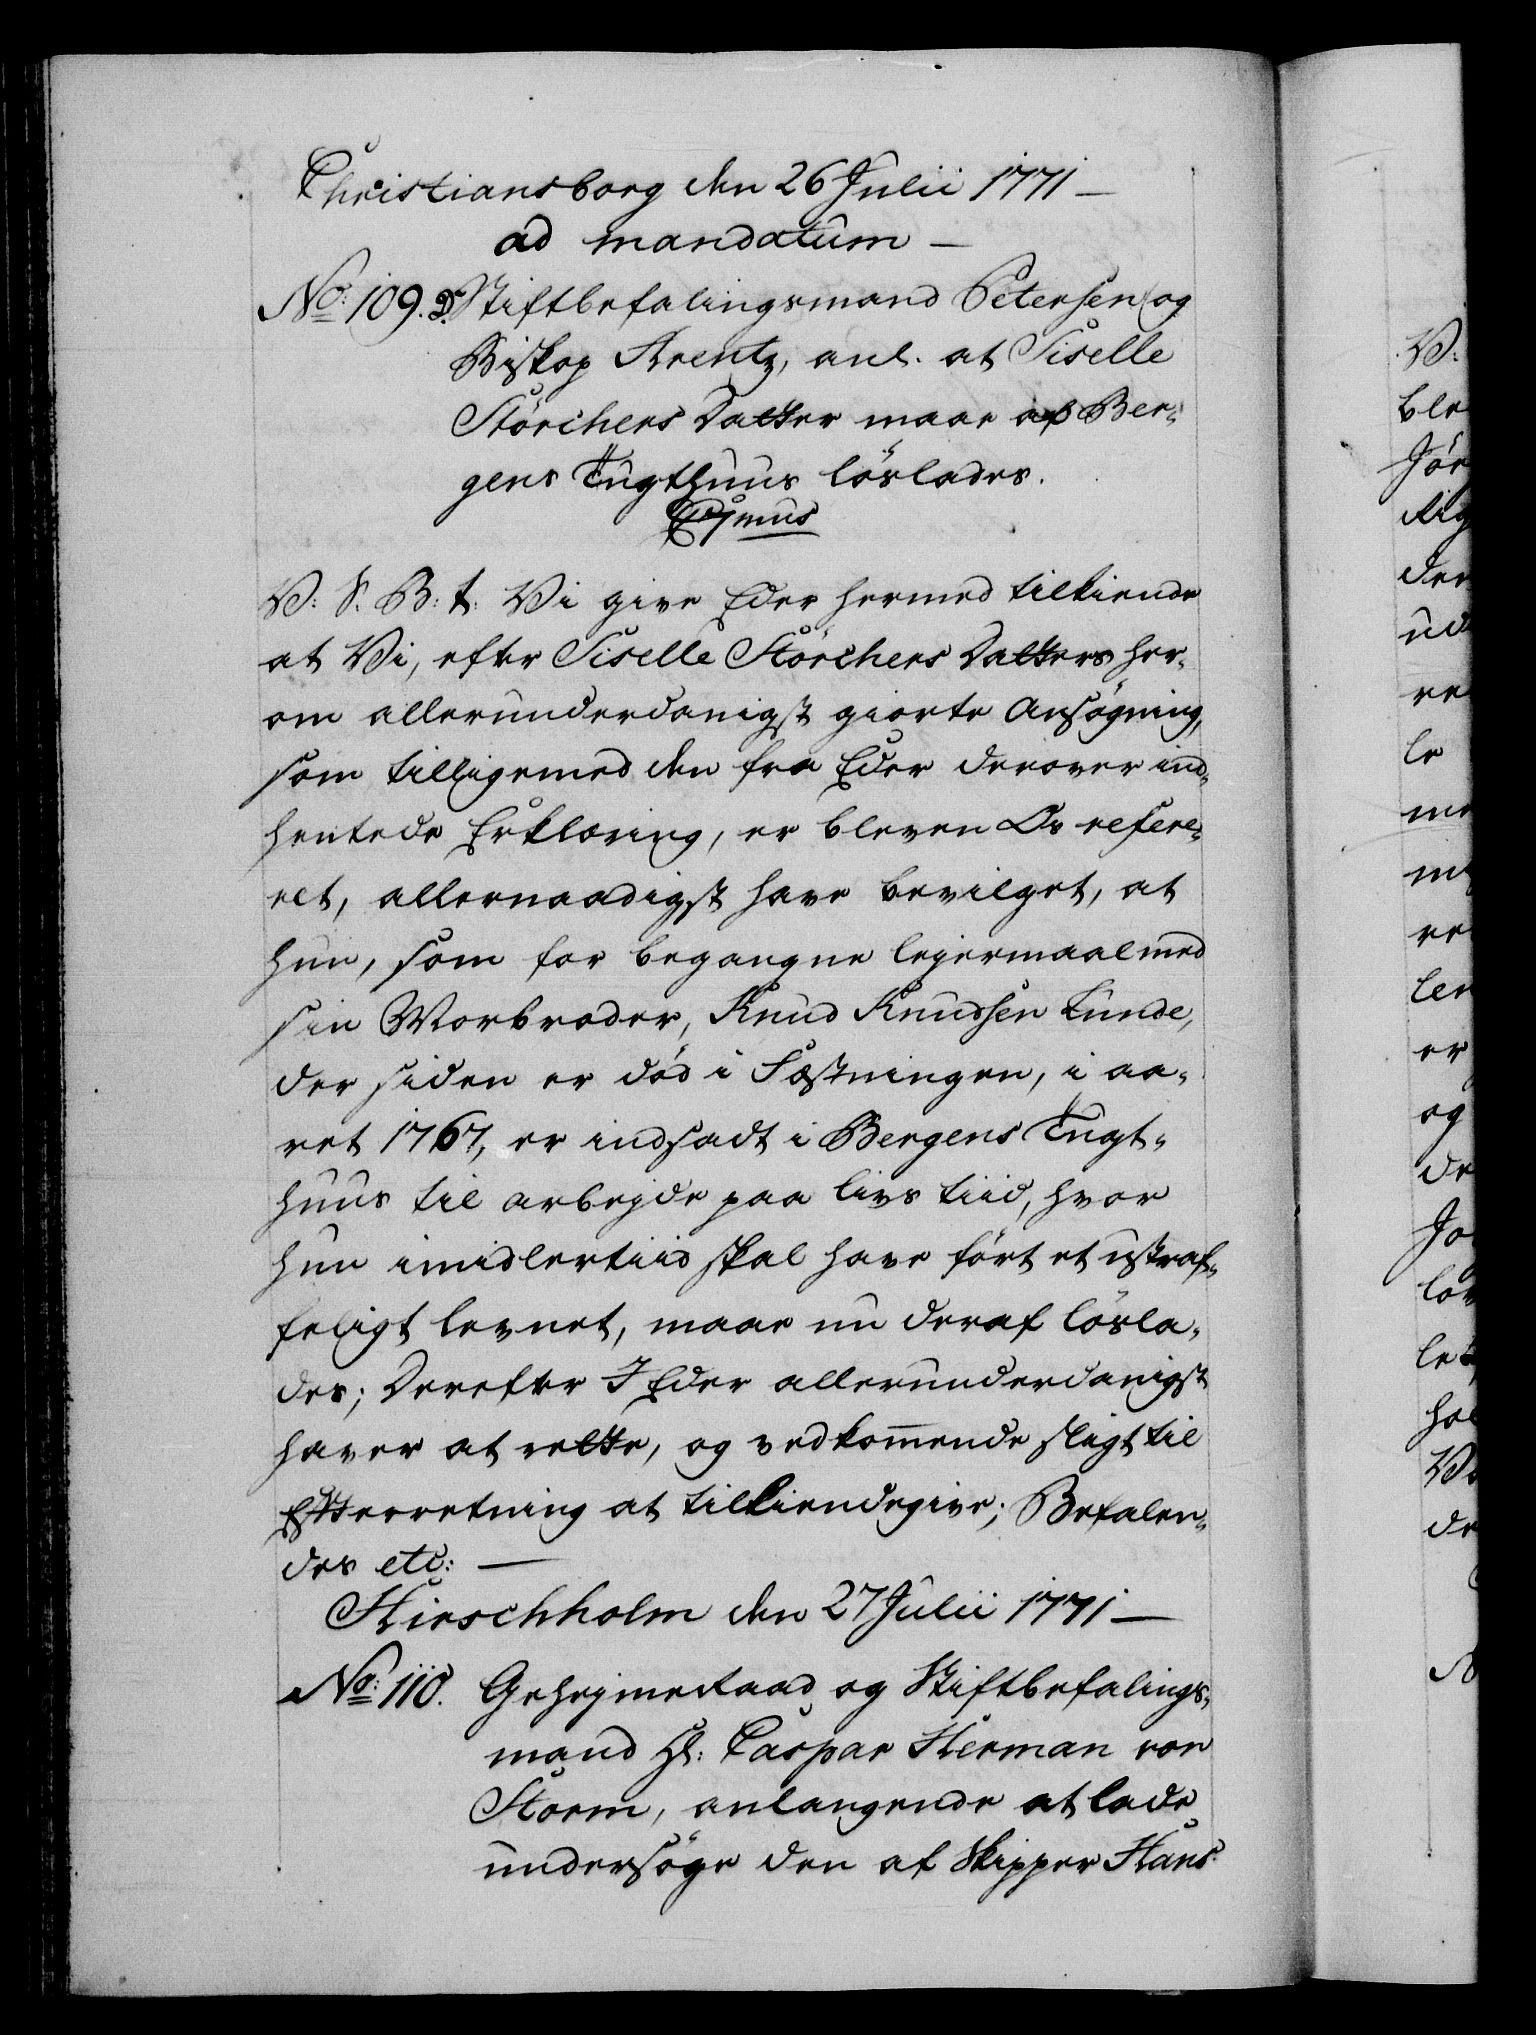 Christiansborg den 26 Julii 1771 —
ad mandatum —
No: 109. D. Stiftbefalingsmand Petersen og
Biskop Arentz, anl. at Siselle
Störchers Datter maae af Ber-
gens Tugthuus löslades.
V: S. B: t: Vi give Eder hermed tilkiende
at Vi, efter Siselle Störchers Datters her-
om allerunderdanigst giorte Ansögning,
som tilligemed den fra Eder derover ind-
hentede Erklæring, er bleven Os refere-
ret, allernaadigst have bevilget, at
hun, som for begangne lejermaal med
sin Morbroder, Knud Knudsen Lunde,
der siden er död i Fæstningen, i aa-
ret 1767, er indsadt i Bergens Tugt-
huus til arbejde paa livs tiid, hvor
hun imidlertiid skal have fört et ustraf-
feligt levnet, maae nu deraf lösla-
des; Derefter I Eder allerunderdanigst
haver at rette, og vedkommende sligt til
Efterretning at tilkiendegive; Befalen-
des etc: —
Hirschholm den 27 Julii 1771 —
No: 110. Gehejmeraad og Stiftbefalings-
mand Hl: Caspar Herman von
Storm, anlangende at lade
undersöge den af Skipper Hans